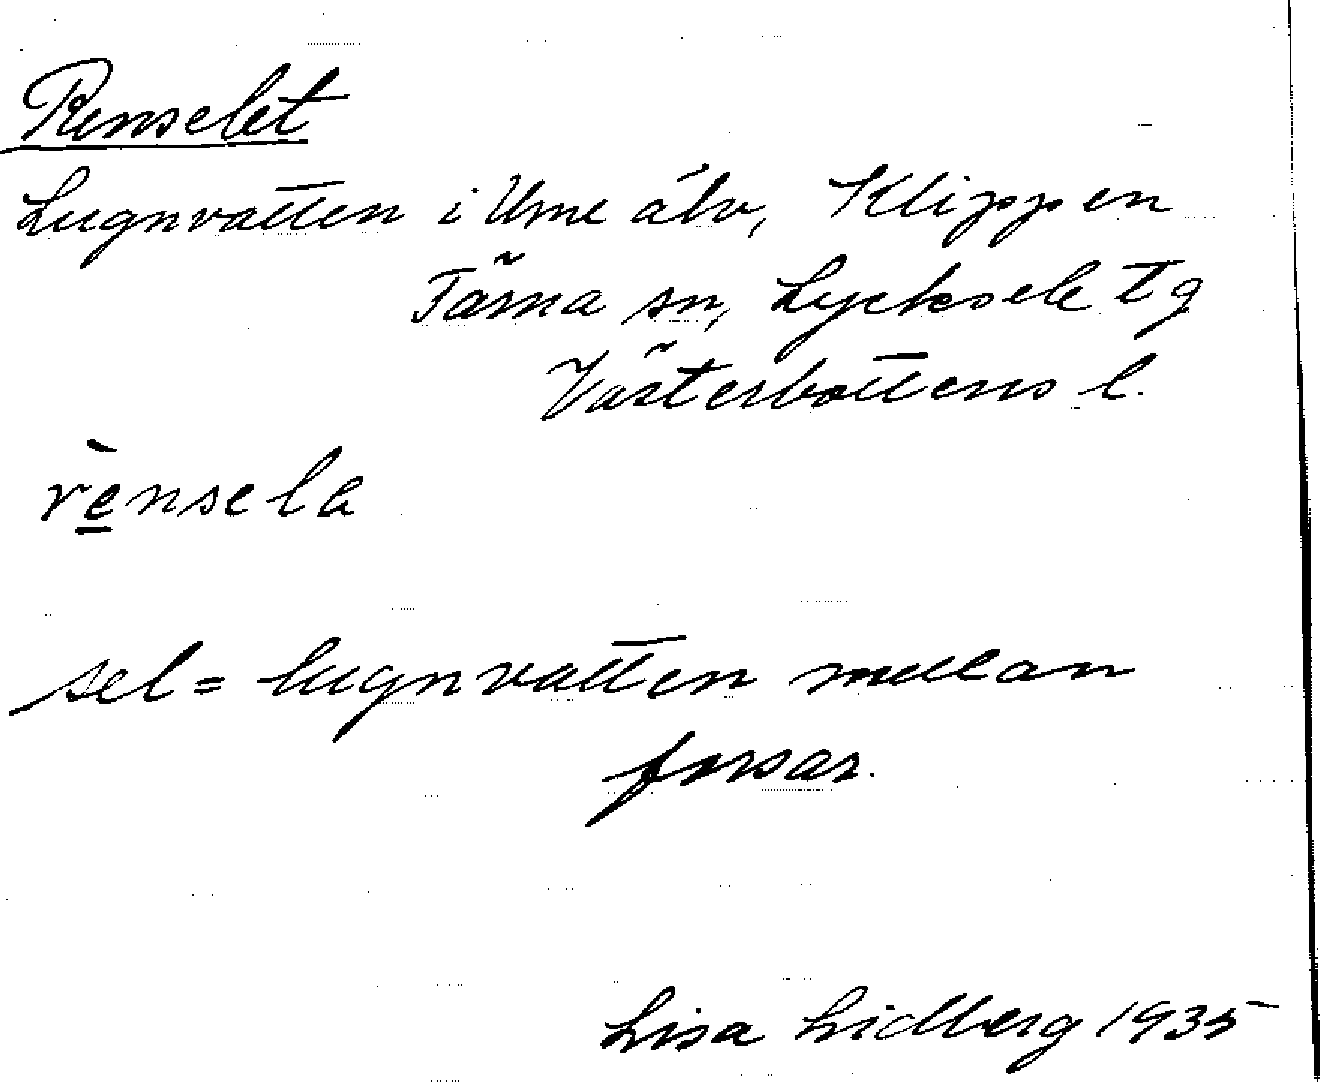 Renselet
Lugnvatten i Ume älv, Klippen
Tärna sn, Lycksele tg
Västerbottens l.
rènsela
sel = lugnvatten mellan
forsar.
Lisa Lidberg 1935